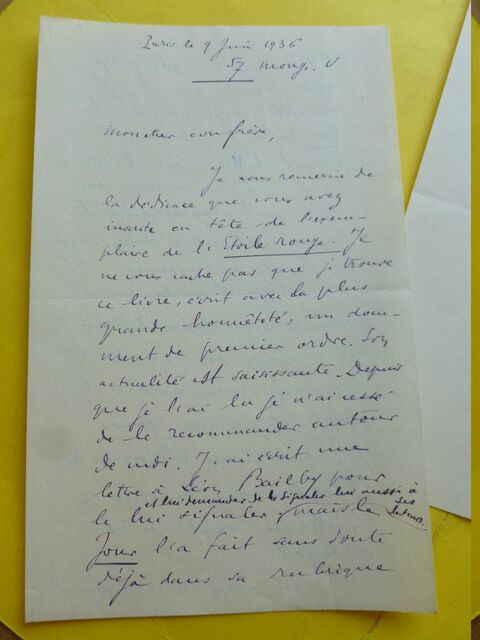 Paris le 9 Juin 1936
57 Monge. V
Mon cher confrère,
Je vous remercie de
la dédicace que vous avez
inscrite en tête de l'exem-
plaire de l'Etoile rouge. Je
ne vous cache pas que je trouve
ce livre, écrit avec la plus
grande honnêteté, un docu-
ment de premier ordre. Son
actualité est saisissante. Depuis
que je l'ai lu je n'ai cessé
de le recommander autour
de moi. J'ai écrit une
lettre à Léon Bailby pour
et lui demander de le signaler lui aussi à ses lecteurs.
le lui signaler, mais le
Jour l'a fait sans doute
déjà dans sa rubrique